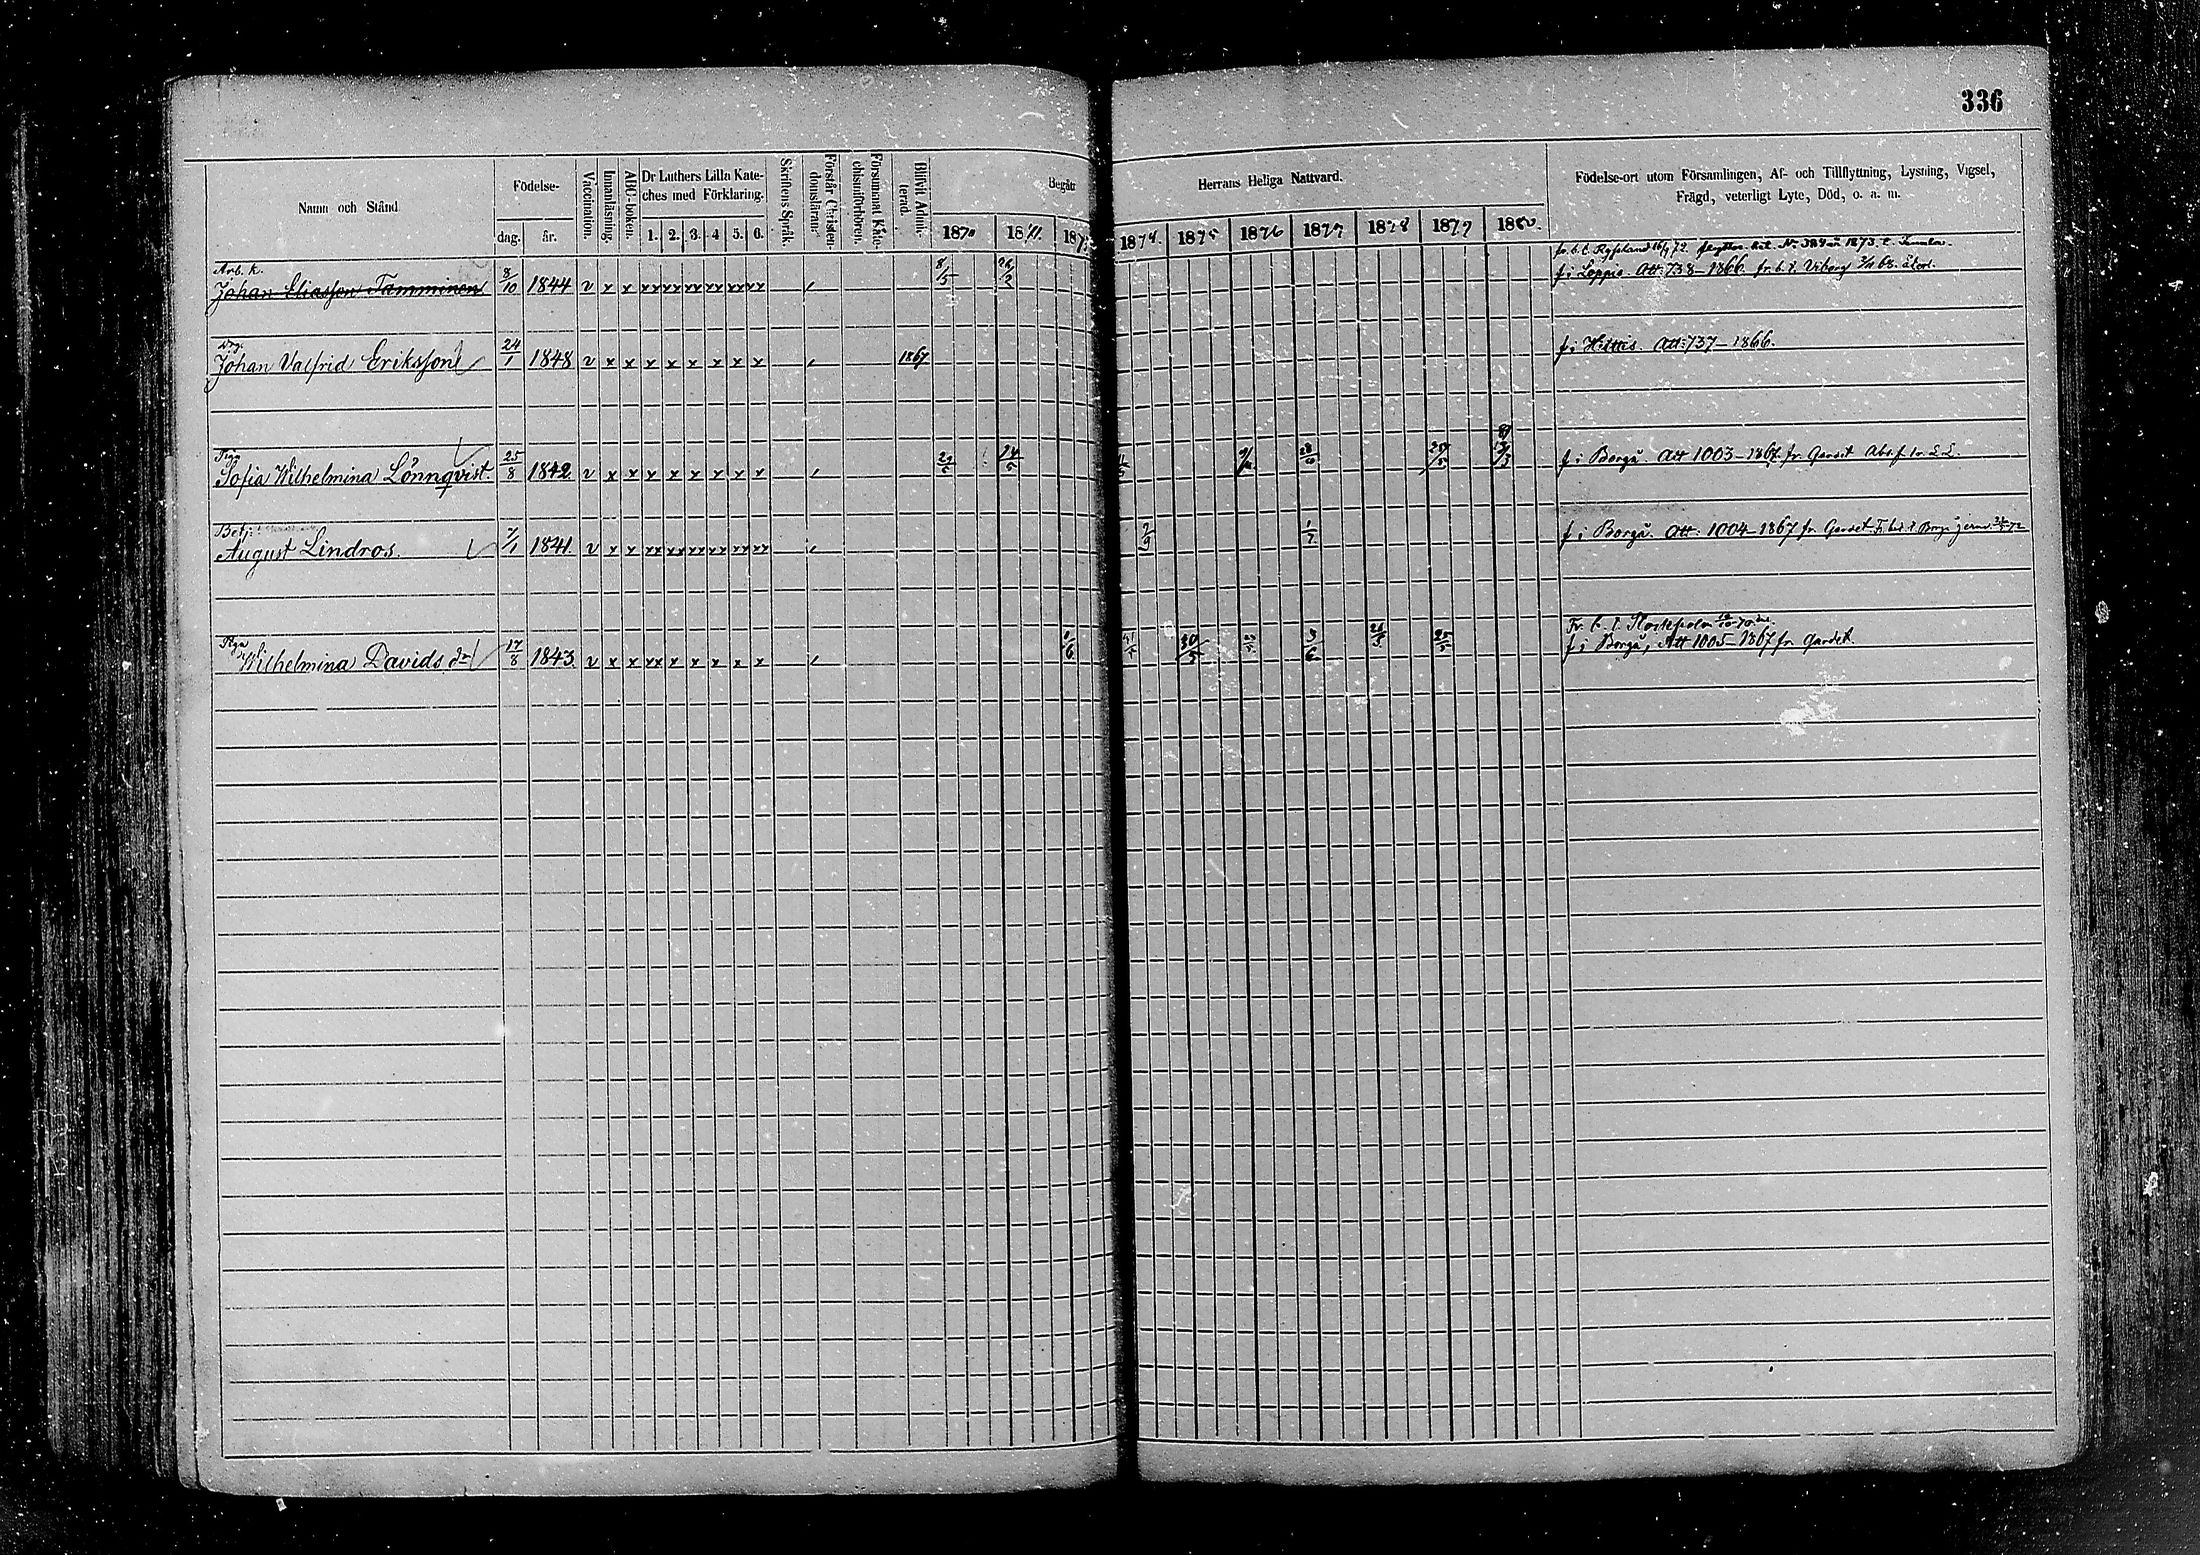 336
Namn och Stånd
Födelse-
dag. år.
Vaccination.
Innanläsning.
ABC-boken.
Dr Luthers Lilla Kate-
ches med Förklaring.
1. 2. 3. 4 5. 6.
Skriftens Språk.
Förstår Christen-
domsläran.
Försummat Kate-
chismiförhören.
Blifvit Admit-
terad.
Begått
Herrans Heliga Nattvard.
1870 1871. 187
1874. 1875 1876 1877 1878 1879 1880.
Födelse-ort utom Församlingen, Af- och Tillflyttning, Lysning, Vigsel,
Frägd, veterligt Lyte, Död, o. a. m.
Arb. k.
Johan Eliasson Tamminen 8/10 1844 v x x xx xx xx xx xx xx 8/5
fr. b. t. Ryssland 16/9 72. flyttn. bet. No 384 1873. t.
f. i Loppis. Att: 738-1866. fr. b. t. Viborg
Drg.
Johan Valfrid Eriksson 24/1 1848 v x x x x x x x x 1867
f. i Hittis. Att: 737-1866.
Piga
Sofia Wilhelmina Lönnqvist. 25/8 1842 v x x x x x x x x 29/5 29/5 13/3
f. i Borgå. Att 1003-1867 fr. Gardet
Betj.
August Lindros. 7/1 1841. v x x xx xx xx xx xx xx 2/9 1/7
f. i Borgå. Att: 1004-1867 fr. Gardet
Piga
Wilhelmina Davids dr 17/8 1843. v x x xx x x x x x 1/6 30/5 3/6 25/5
Fr. b. t. Stockholm
f. i Borgå, Att 1005-1867 fr. Gardet.